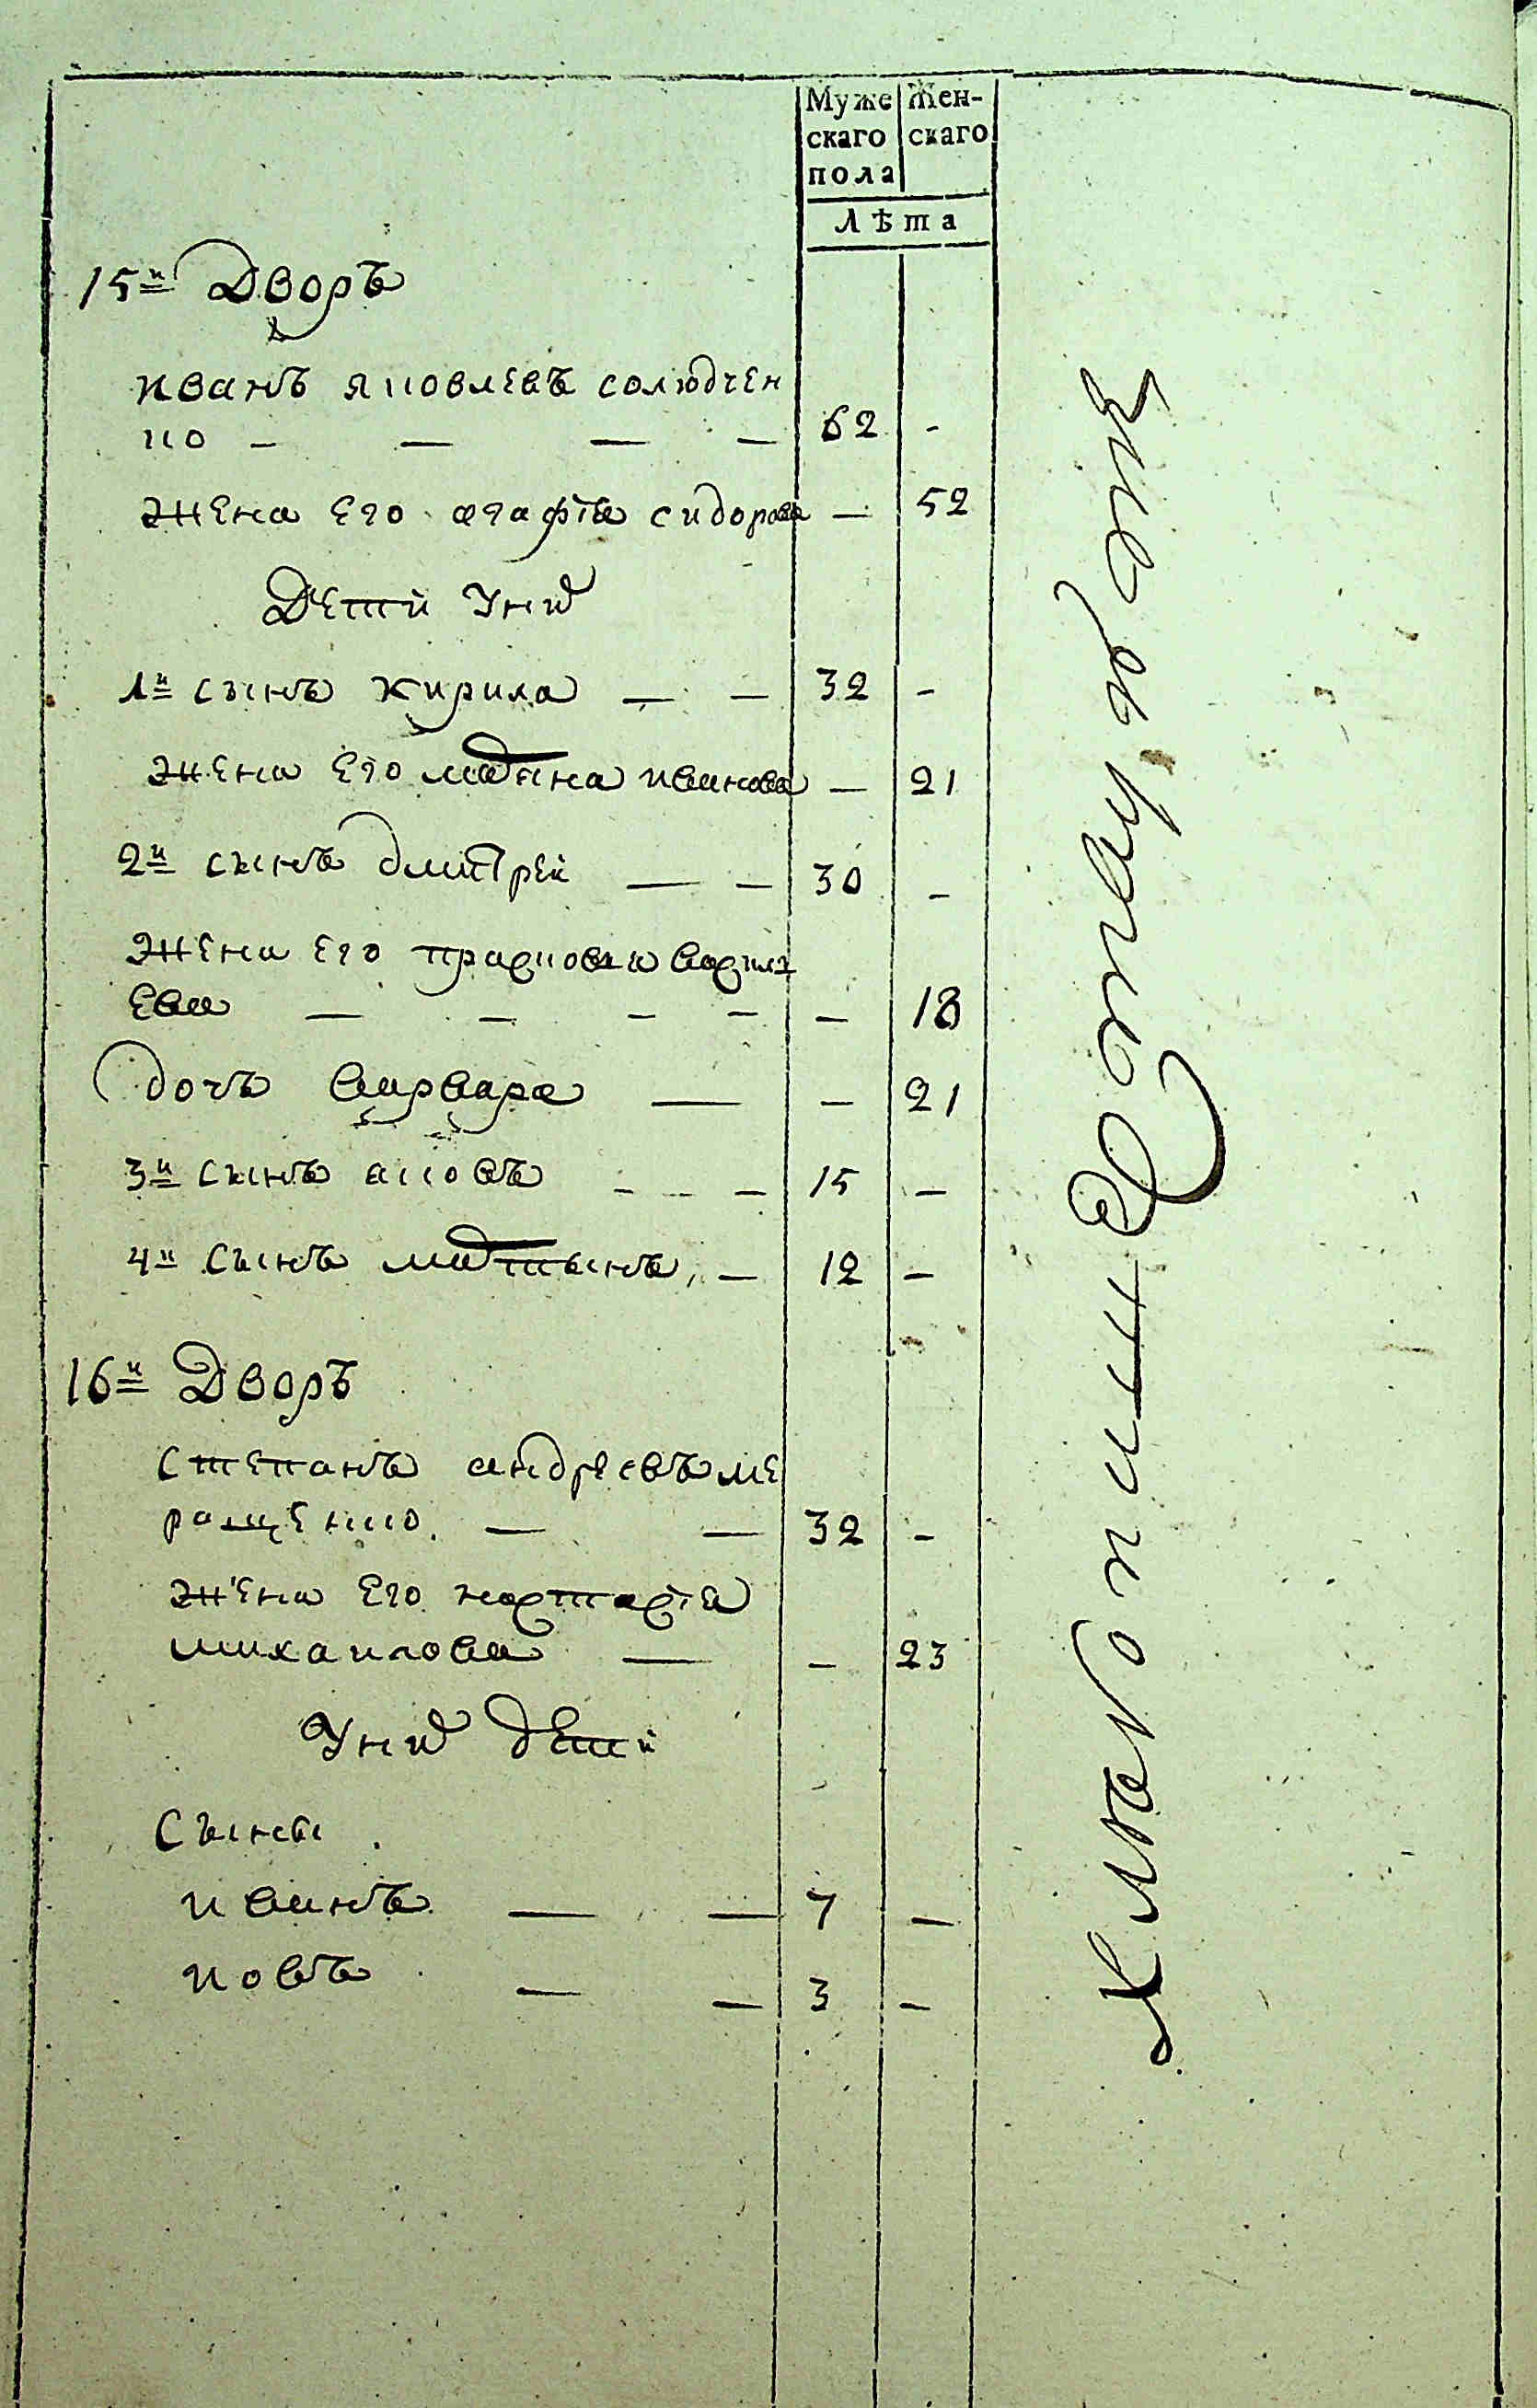 Муже Жен-
скаго скаго
пола
Лѣта
15й Дворъ
иванъ яковлевъ солюдчен
ко — — — — 62 -
Жена его агафїя сидорова — 52
Дети Уних
1й сынъ кирила — — 32 -
Жена его матяна иванова — 21
2й сынъ дмитрей — — 30 -
Жена его прасковья васил
ева — — — — — 18
дочь варвара — — 21
3й сынъ яковъ - - - 15 —
4й сынъ мартынъ — 12 —
16й Дворъ
степанъ андреевъ ме
ращенко — — 32 -
Жена его настасїя
михаилова — — 23
Уних дети
Сыны
иванъ — — 7 —
иовъ — — 3 —